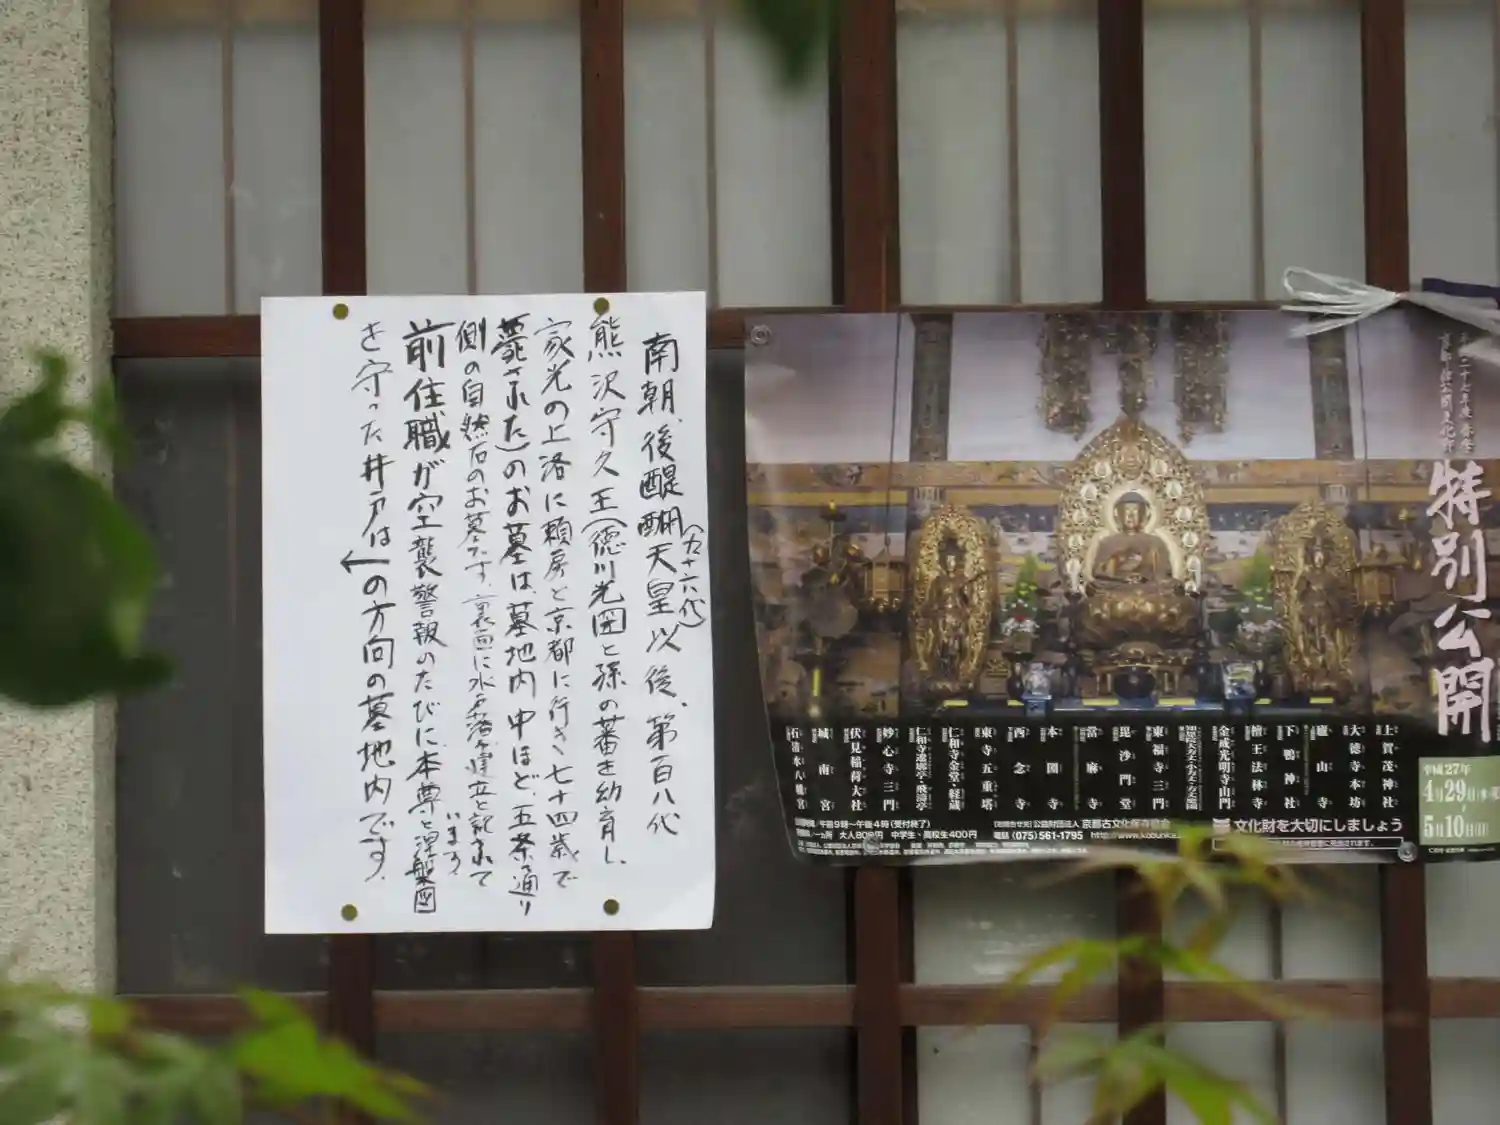 南朝、後醍醐天皇以後、第百八代
(九十六代)
熊沢守久王(徳川光圀と孫の蕃を幼育し、
家光の上洛に頼房と京都に行き七十四歳で
薨された)のお墓は、墓地内中ほど、五条通り
側の自然石のお墓です。裏面に水戸藩建立と記されて
います。
前住職が空襲警報のたびに、本尊と涅槃図
を守った井戸は
←の方向の墓地内です。
特別公開
平成27年
4月29日
5月10日
上賀茂神社
大徳寺本坊
廬山寺
下鴨神社
檀王法林寺
金戒光明寺山門
東福寺三門
毘沙門堂
當麻寺
本圀寺
西念寺
東寺五重塔
仁和寺金堂・経蔵
仁和寺遼廓亭・飛濤亭
妙心寺三門
伏見稲荷大社
城南宮
石清水八幡宮
午前9時〜午後4時(受付終了)
大人800円 中学生・高校生400円
公益財団法人 京都古文化保存協会
電話(075)561-1795
文化財を大切にしましょう